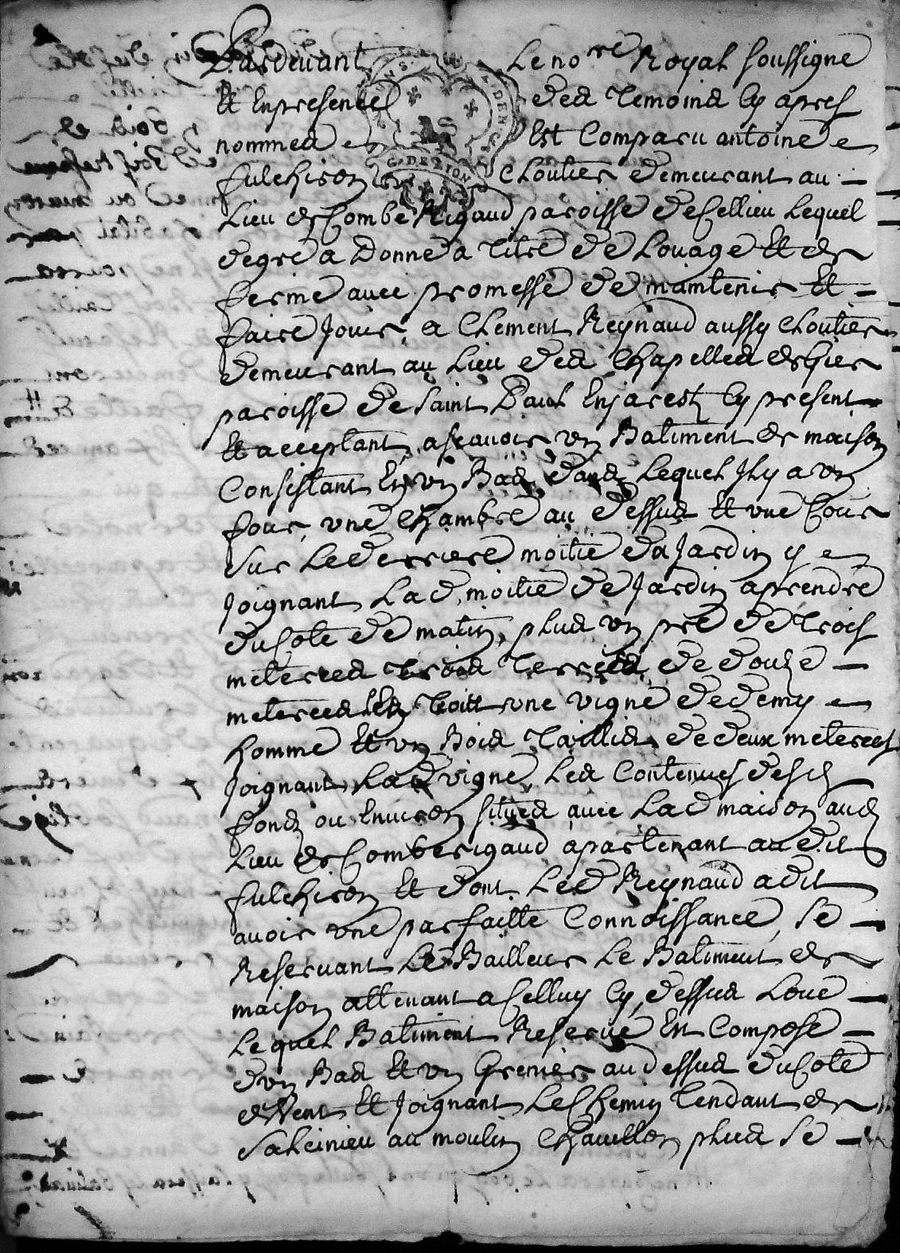 Pardevant Le no.re Royal soussigne
Et En presence des Temoins Cy apres
nommes Est Comparu antoine
fulchiron Cloutier demeurant au
Lieu de Combe Rigaud paroisse de Cellieu Lequel
de gre a Donne a Titre de Louage Et de
ferme avec promesse de maintenir Et
faire Jouir, a Clement Reynaud aussy Cloutier
demeurant au Lieu des Chapelles de Gier
paroisse de Saint Paul En Jarest Cy present
Et acceptant, ascavoir un Batiment de maison
Consistant En un Bas, dans Lequel Il y a un
four, une Chambre au dessus Et une Cour
sur Le derriere moitié du Jardin y
Joignant La d. moitié de Jardin a prendre
du Coté de matin, plus un pré de Trois
meterees Trois Terres de douze
meterees En Tout une vigne de demy
homme Et un Bois Taillis de deux meterees
Joignant La d vigne, Les Contenues desd
fonds ou Environ situes avec La d maison aud
Lieu de Comberigaud apartenant au dit
fulchiron Et dont Le d Reynaud a dit
avoir une parfaitte Connoissance, se
Reservant Le Bailleur Le Batiment de
maison attenant a Celluy Cy dessus Loué
Lequel Batiment Reservé Est Composé
d'un Bas Et un Grenier au dessus du Coté
de Vent Et Joignant Le Chemin Tendant de
Salcinieu au moulin Chavillon plus se
G. DE LYON